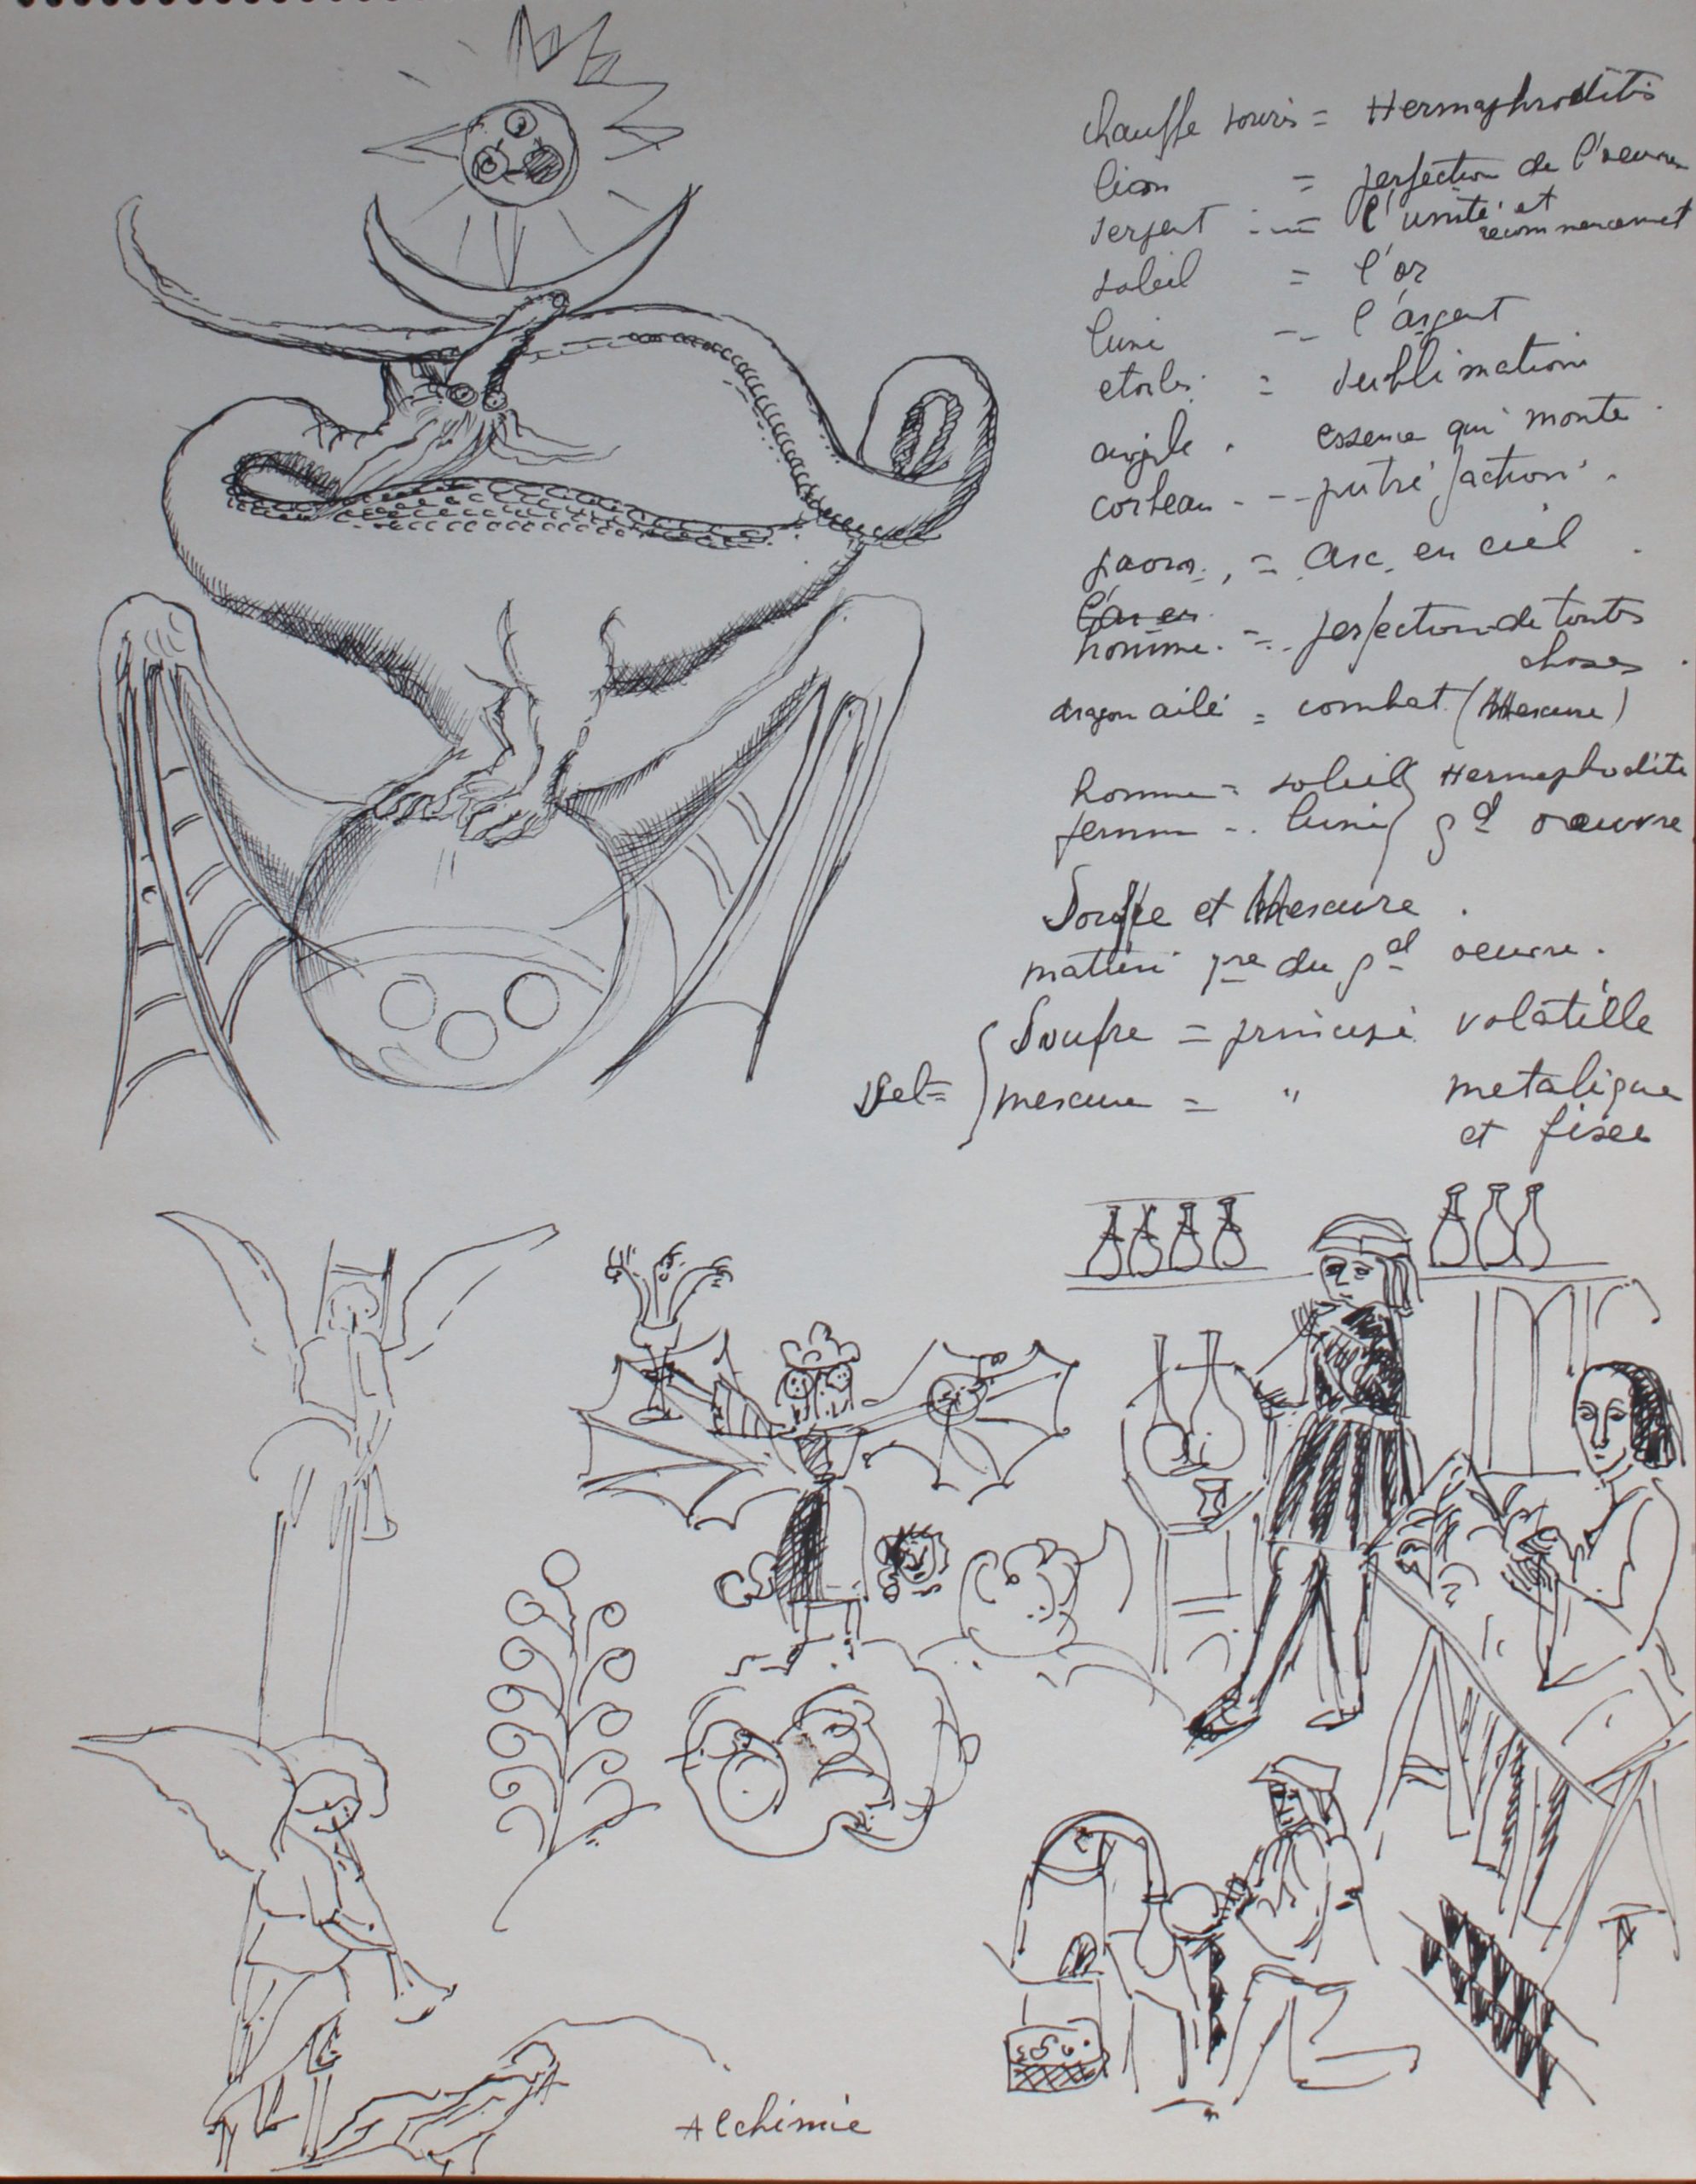 chauffe souris = Hermaphroditis
lion = perfection de l'oeuvre
serpent = l'unité et recommencemet
soleil = l'or
lune = l'argent
etoiles = sublimation
aigle . essence qui monte .
corbeau - -- putréfaction .
paon . = arc en ciel .
homme . = perfection de toutes
choses .
dragon ailé = combat (Mercure)
homme = soleil } Hermaphrodite
femme = lune } gd oeuvre
Soufre et Mercure .
matière 1re du gd oeuvre .
Soufre = principe volatille
Sel = { mercure = " metalique
et fixee
Alchimie